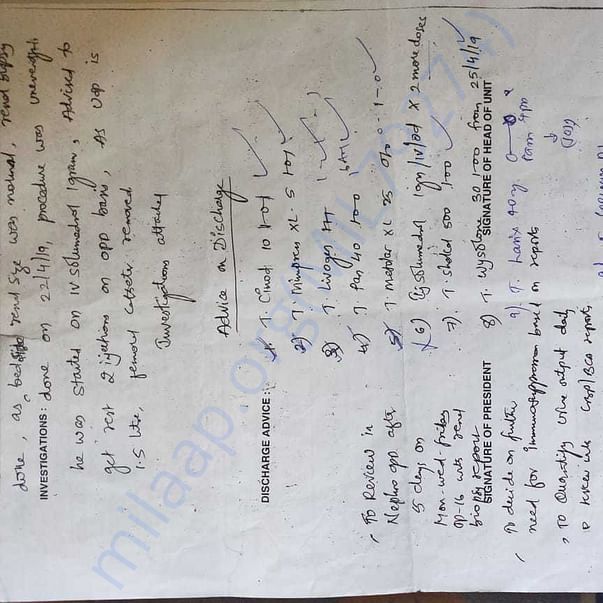 done, as bedside renal size was normal, renal biopsy
INVESTIGATIONS: done on 22/4/19, procedure was uneventful
he was started on IV solumedrol 1 gram, Advised to
get rest 2 injections on OPD basis, As UOP is
1.5 litre, femoral catheter removed
Investigations attached
Advice on Discharge
DISCHARGE ADVICE:
1. T. Cinod 10 1-0-1
2) T. Minipress XL 5 1-0-1
3) T. Livogen
4) T. Pan 40 1-0-0
5) T. Metolar XL 25 1-0
6) Inj Solumedrol 1gm/IV/od x 2 more doses
7) T. Shelcal 500 1-0-0
8) T. Wysolone 30 1-0-0 from 25/4/19
9) T. Lasix 40mg
8am 4pm
To Review in
Nephro OPD after
5 days on
Mon-wed-Friday
OP-16 with renal
biopsy report
SIGNATURE OF PRESIDENT
SIGNATURE OF HEAD OF UNIT
To decide on further
need for Immunosuppression based on reports
To Quantify urine output daily
reports
milaap.org